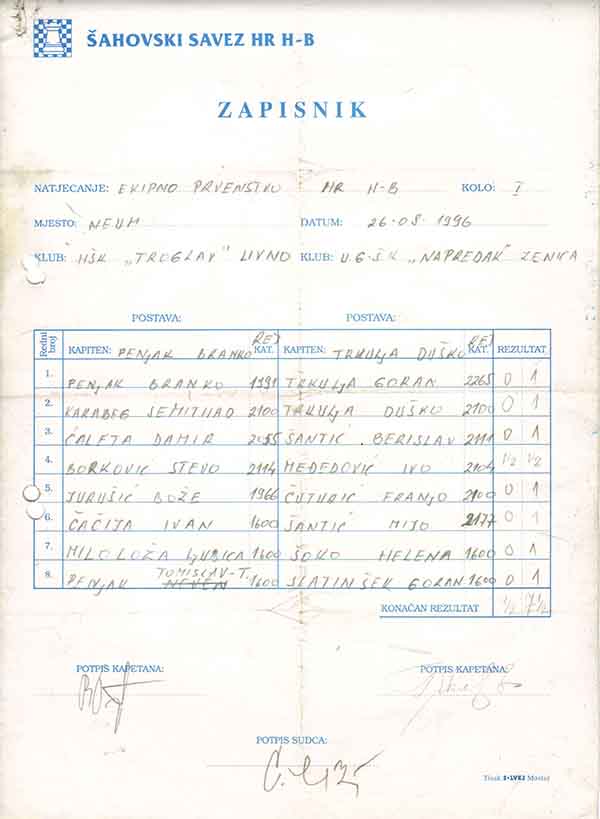 ŠAHOVSKI SAVEZ HR H-B
ZAPISNIK
NATJECANJE: EKIPNO PRVENSTVO HR H-B KOLO: I
MJESTO: NEUM DATUM: 26-08 1996
KLUB: HŠK "TROGLAV" LIVNO KLUB: U.G.Š.K "NAPREDAK" ZENICA
POSTAVA: POSTAVA:
Redni broj KAPITEN: PENJAK BRANKO REJ KAT. KAPITEN: TRKULJA DUŠKO REJ KAT. REZULTAT
1. PENJAK BRANKO 1191 TRKULJA GORAN 2265 0 1
2. KARABEG SEMITHAD 2100 TRKULJA DUŠKO 2100 0 1
3. ĆALETA DAMIR 2055 ŠANTIĆ BERISLAV 2111 0 1
4. BORKOVIĆ STEVO 2114 MEĐEDOVIĆ IVO 2104 1/2 1/2
5. JURUŠIĆ BOŽE 1966 ČUTURIĆ FRANJO 2100 0 1
6. ČAČIJA IVAN 1600 ŠANTIĆ MIJO 2177 0 1
7. MILOLOŽA LJUBICA 1600 ŠOKO HELENA 1600 0 1
8. PENJAK NEVEN TOMISLAV-T. 1600 SLATINŠEK GORAN 1600 0 1
KONAČAN REZULTAT 1/2 7 1/2
POTPIS KAPETANA: POTPIS KAPETANA:
POTPIS SUDCA:
Tisak Mostar